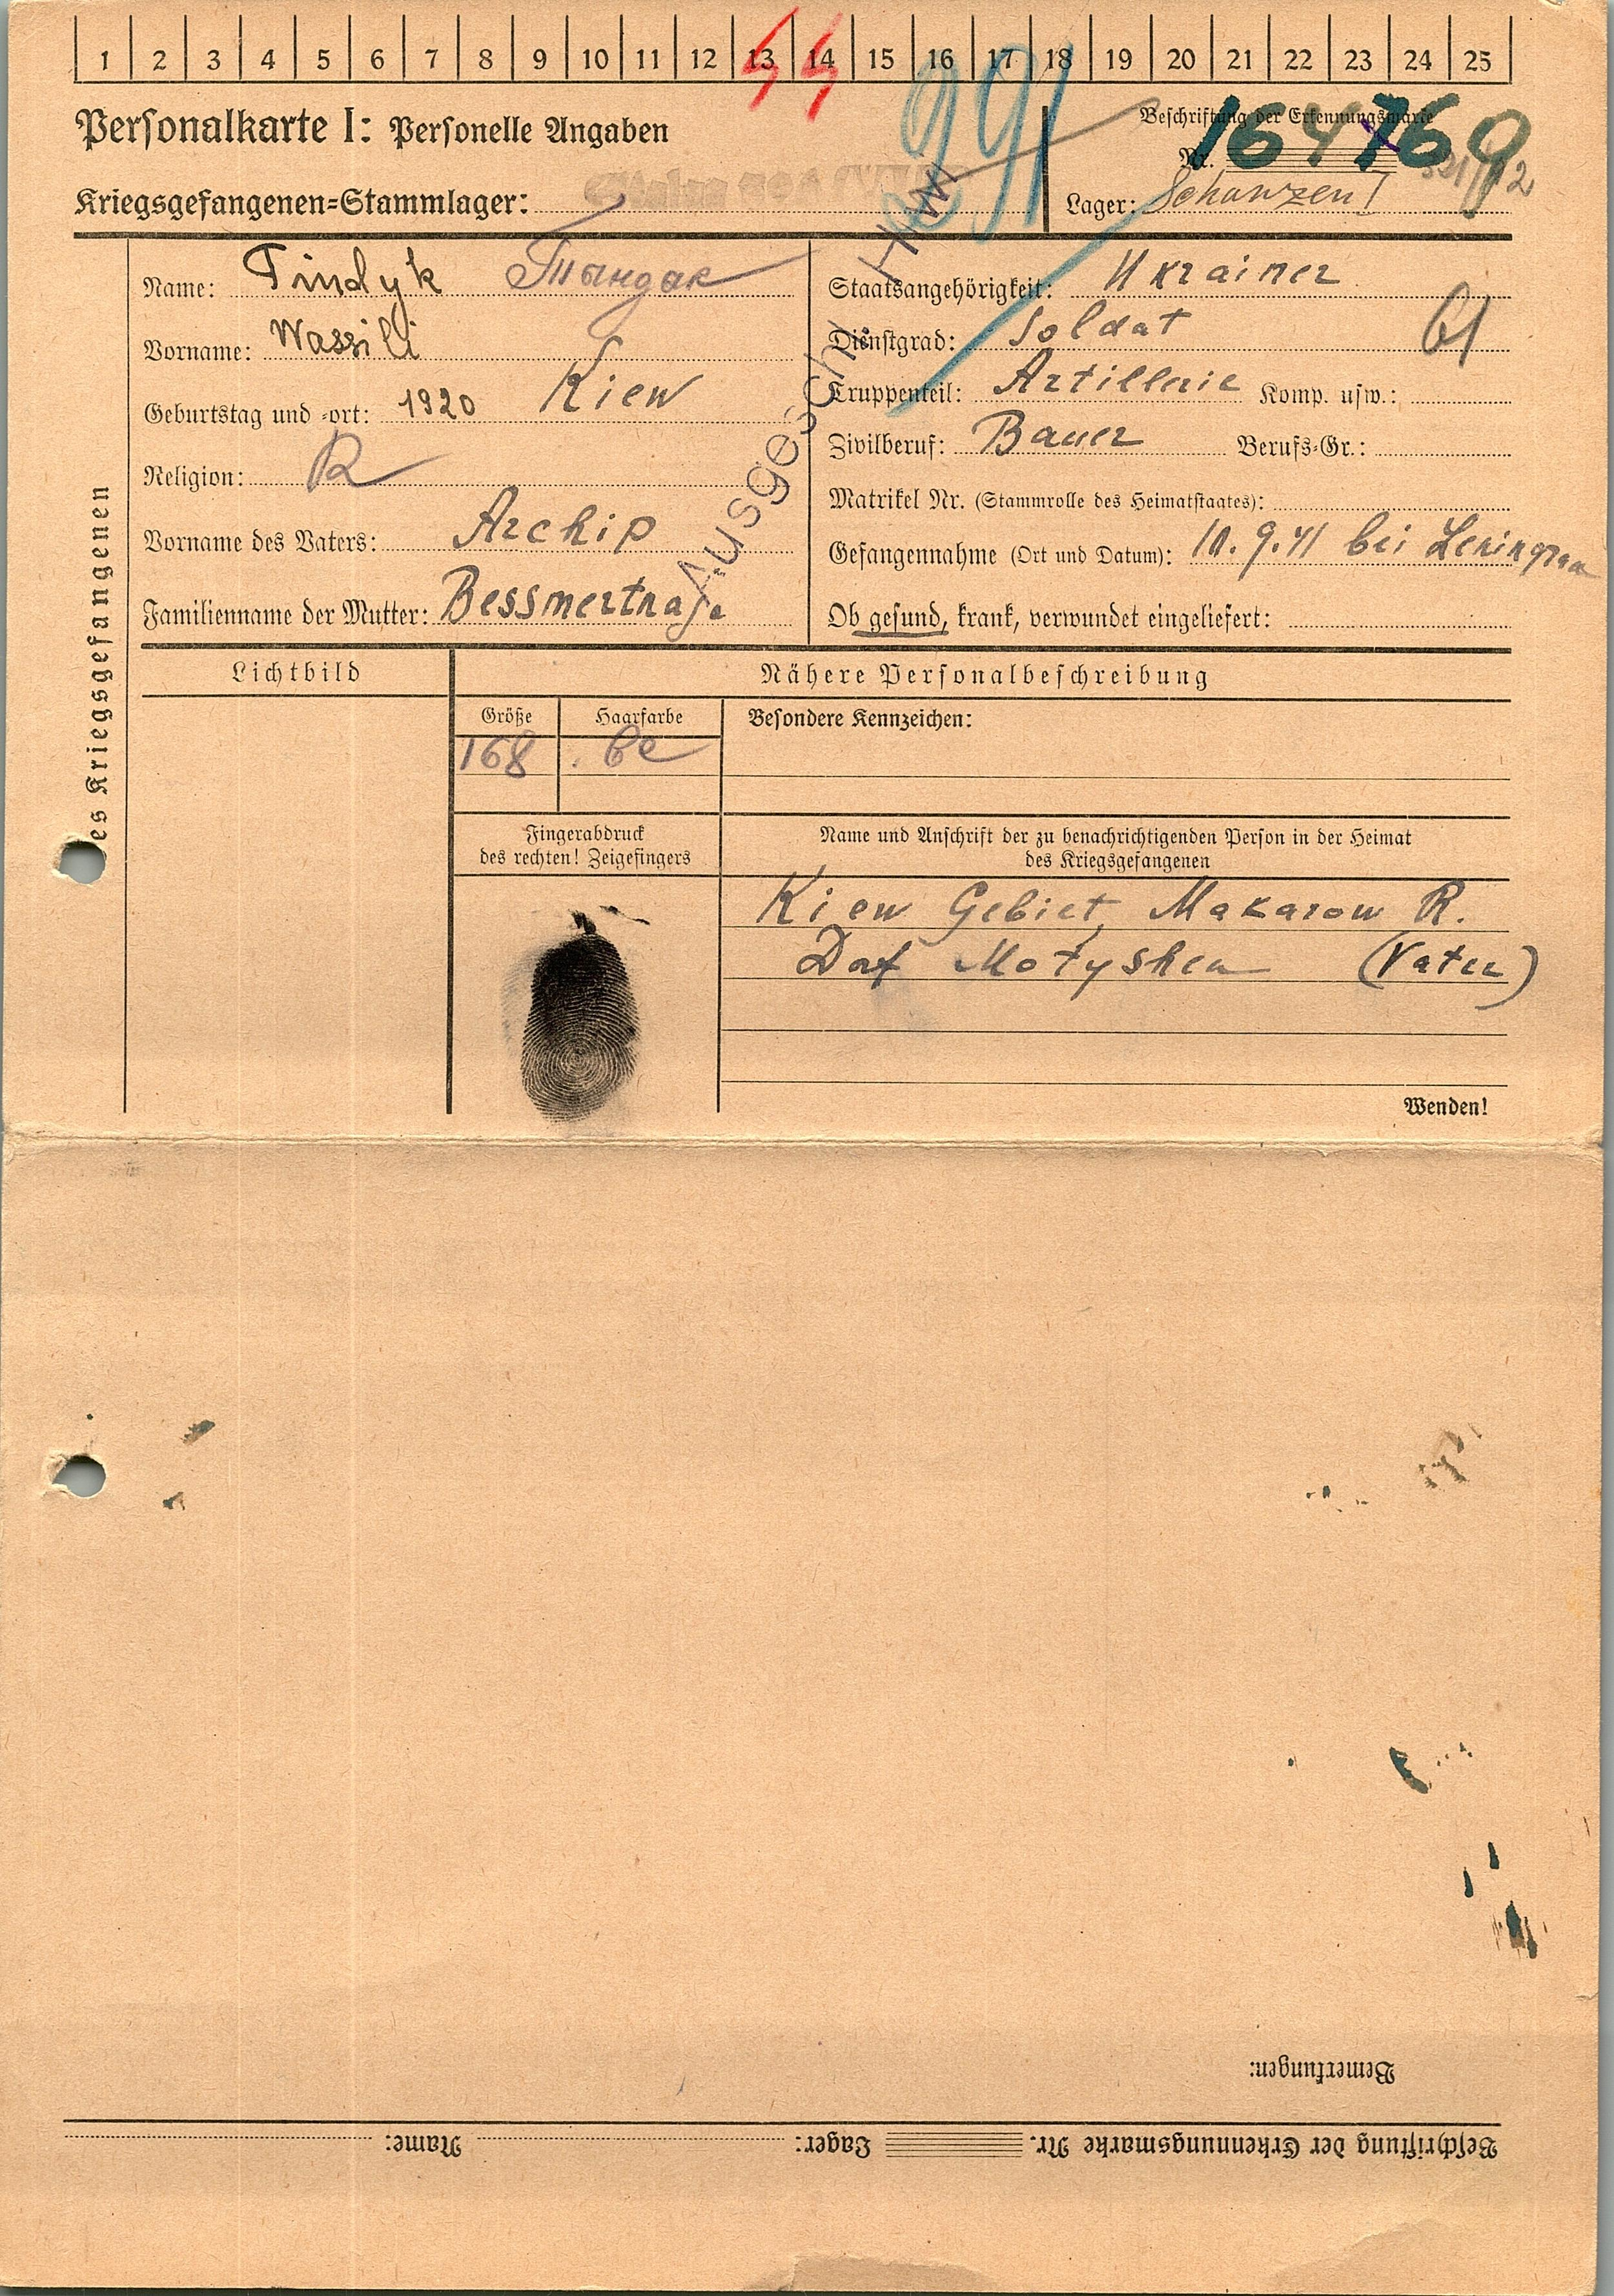 1 2 3 4 5 6 7 8 9 10 11 12 13 14 15 16 17 18 19 20 21 22 23 24 25
Personalkarte I: Personelle Angaben
Kriegsgefangenen-Stammlager:
291
Beschriftung der Erkennungsmarke
Nr. 164769
Lager: Schanzen I
des Kriegsgefangenen
Name: Tindyk Тындык
Vorname: Wassili
Geburtstag und -ort: 1920 Kiew
Religion: R
Vorname des Vaters: Archip
Familienname der Mutter: Bessmertnaja
Staatsangehörigkeit: Ukrainer
Dienstgrad: Soldat
61
Truppenteil: Artillerie Komp. usw.:
Zivilberuf: Bauer Berufs-Gr.:
Matrikel Nr. (Stammrolle des Heimatstaates):
Gefangennahme (Ort und Datum): 10.9.41 bei Leningrad
Ob gesund, krank, verwundet eingeliefert:
Lichtbild
Nähere Personalbeschreibung
Größe Haarfarbe Besondere Kennzeichen:
168
Fingerabdruck
des rechten! Zeigefingers
Name und Anschrift der zu benachrichtigenden Person in der Heimat
des Kriegsgefangenen
Kiew Gebiet, Makarow R.
Dorf Motyshen (Vater)
Wenden!
Bemerkungen:
Beschriftung der Erkennungsmarke Nr. Lager: Name: